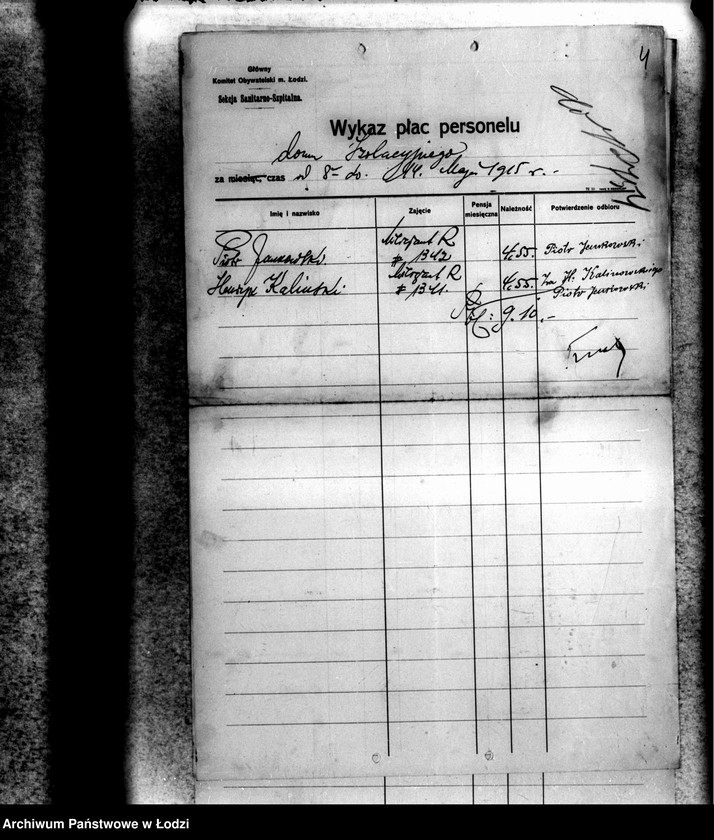 4
Główny
Komitet Obywatelski m. Łodzi.
Sekcja Sanitarno-Szpitalna.
Wykaz płac personelu
domu Izolacyjnego
za miesiąc, czas od 8 do 14. Maja 1915 r.
Imię i nazwisko Zajęcie Pensja miesięczna Należność Potwierdzenie odbioru
Piotr Jankowski R 1342 4.55 Piotr Jankowski
Henryk Kaliński R 1341 4.55 Za H. Kalinowskiego
Piotr Jankowski
9.10
Archiwum Państwowe w Łodzi